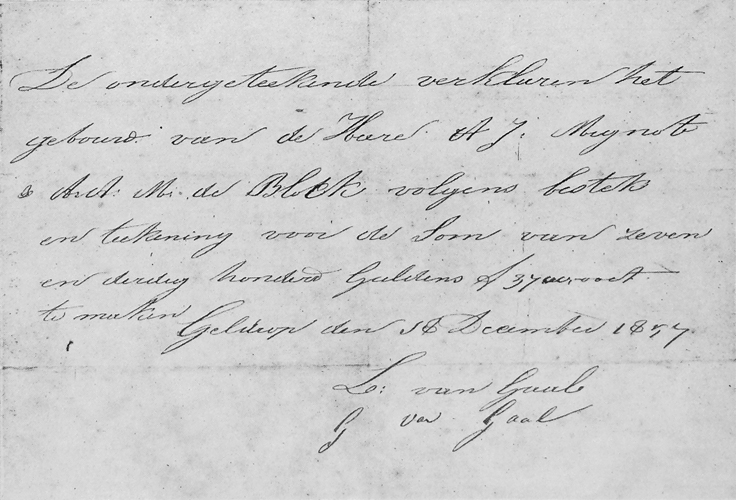 De ondergeteekende verklaren het
gebouw van de Heere A J: Mignot
& A.A. M. de Block volgens bestek
en teekening voor de Som van zeven
en dertig honderd Guldens
te maken
Geldrop den 18 December 1857
L: van Gaal
G van Gaal